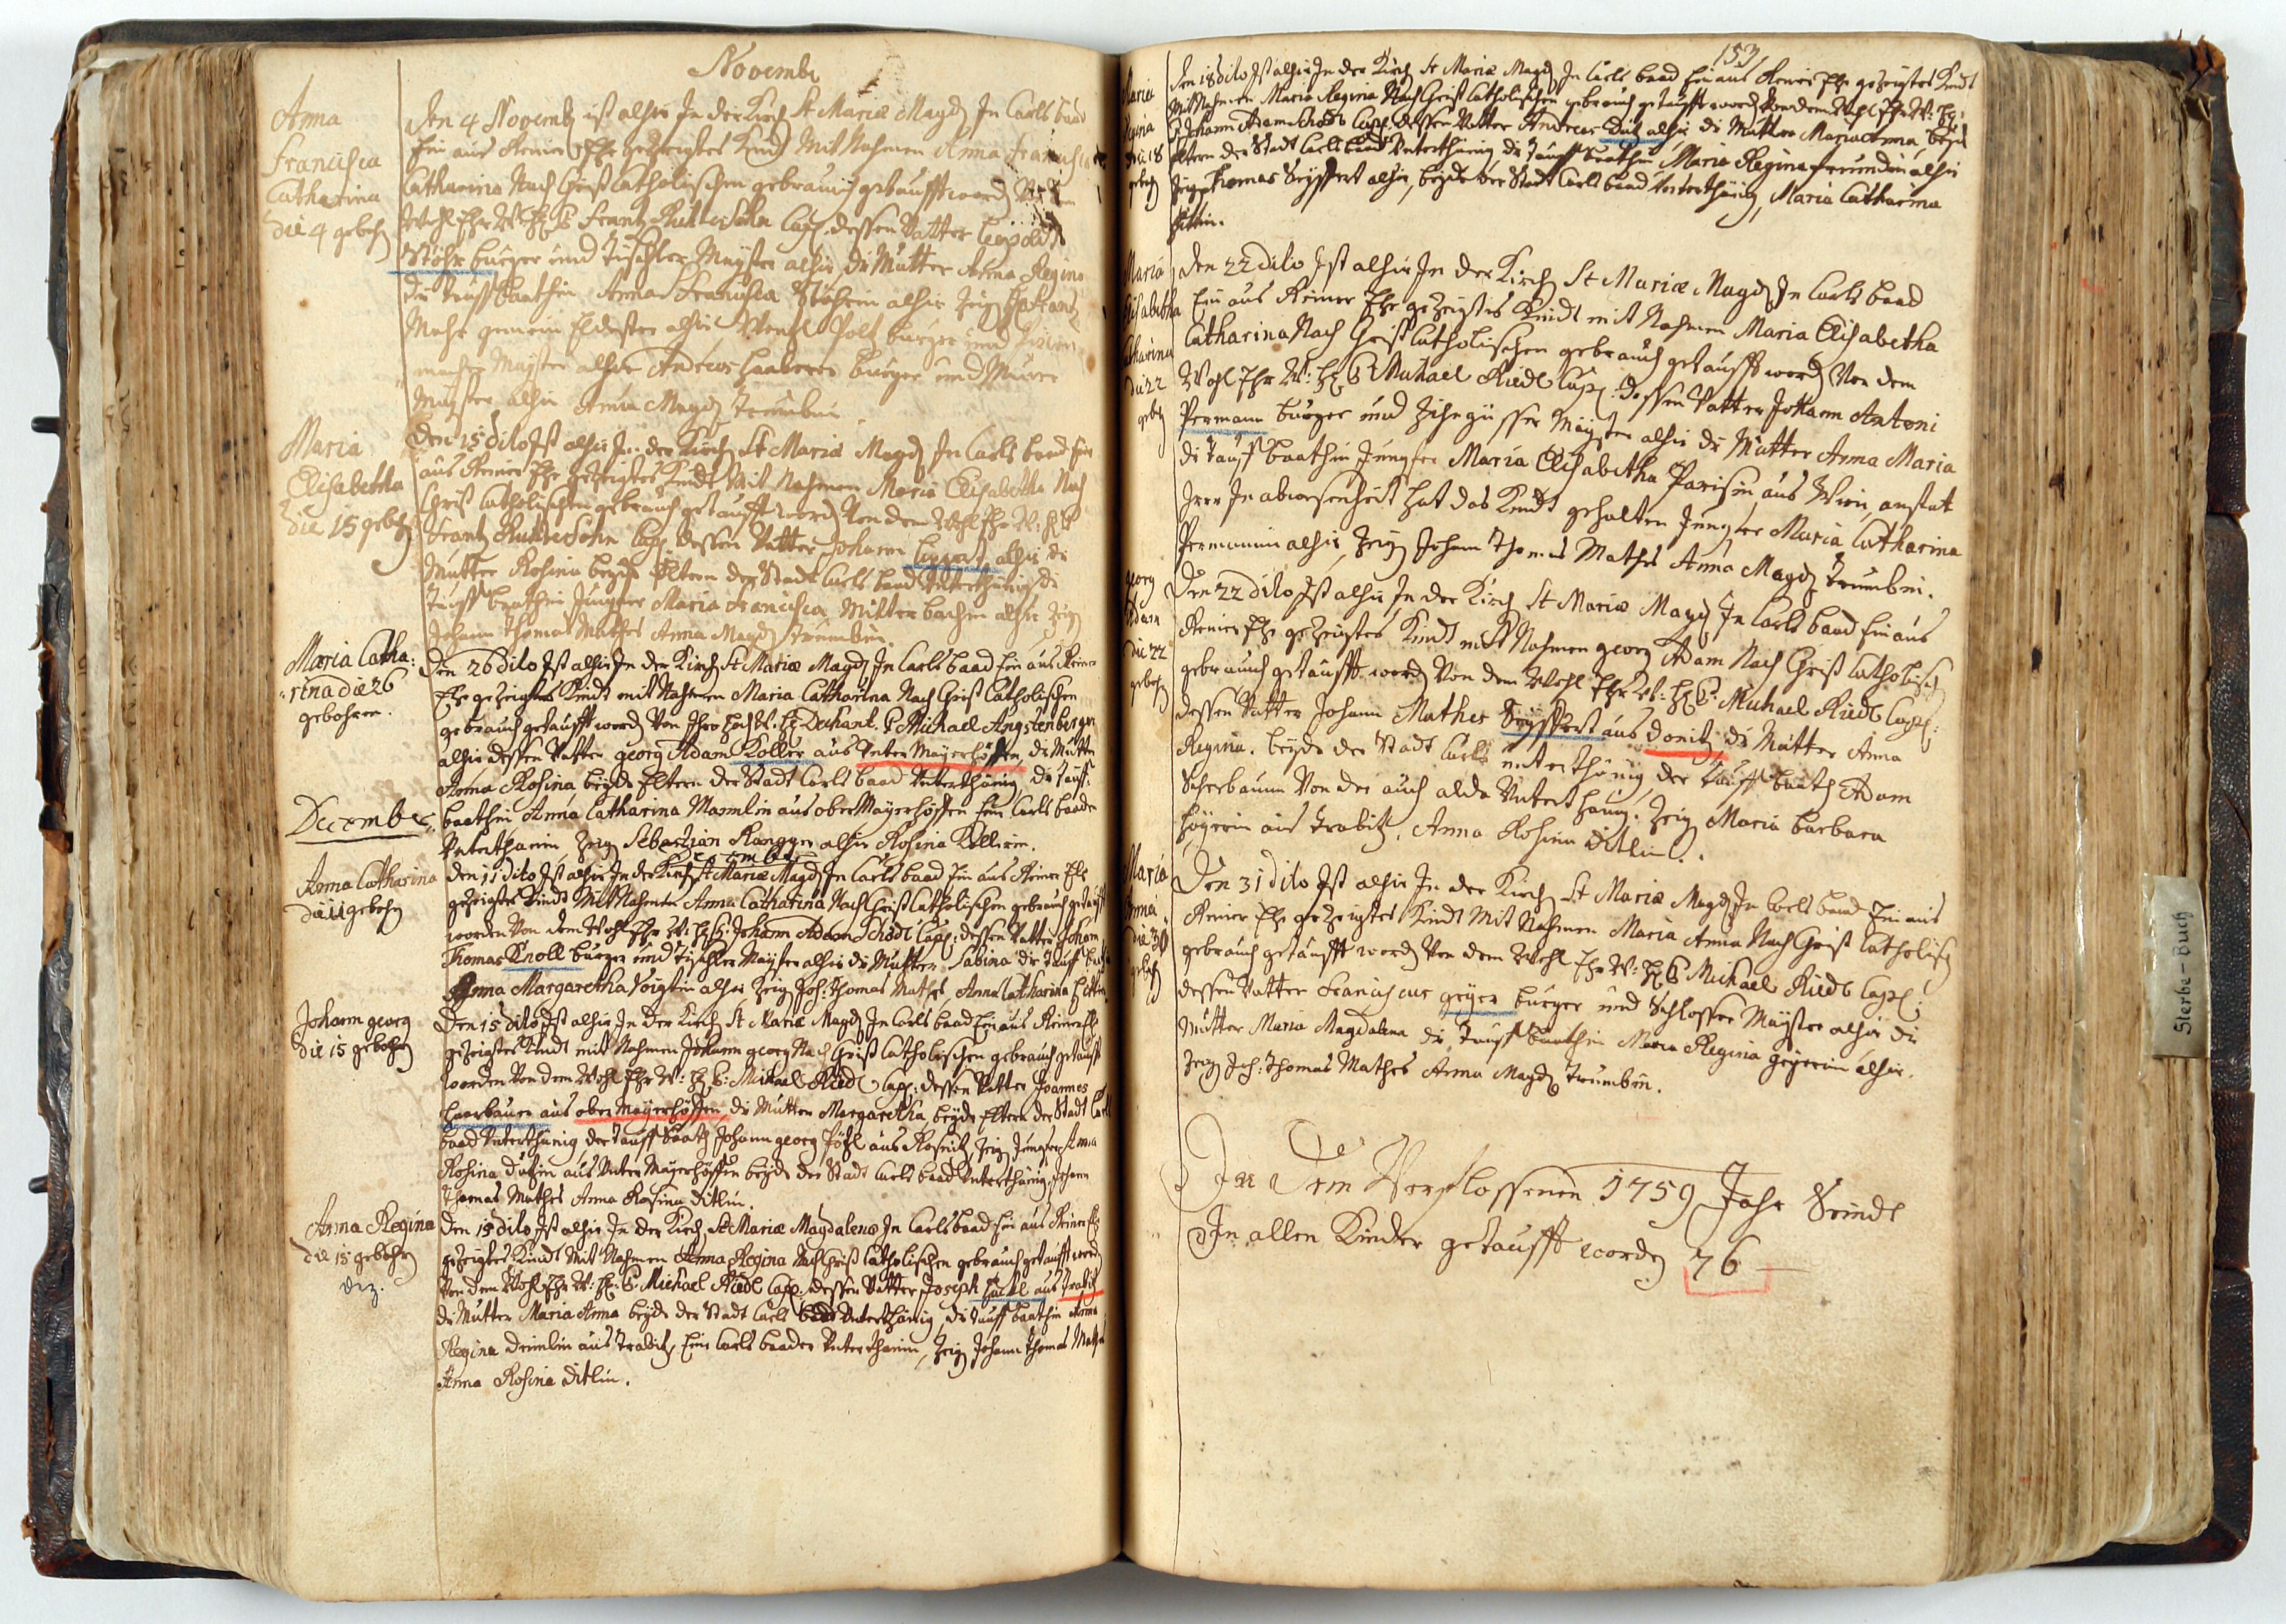 Novembr
Anna
Francisca
Catharina
die 4 gebohr
Den 4 Novemb ist alhir In der Kirch St Mariæ Magd In Carls baad
Ein aus Reiner Ehe gezeigtes Kindt Mit Nahmen Anna Francisca
Catharina Nach Christ Catholischen gebrauch getaufft word Von dem
Wohl Ehr W: H: P Frantz Cap: dessen Vatter Leopold
Stöhr burger und Tischler Mayster alhir, di Mutter Anna Regina
die tauff baathin Anna Francisca Stöhrin alhir Zeug Frantz
Mahr gemein Eldester alhir Wentzl Poltz burger und
macher Mayster alhir Andreas burger und Maurer
Mayster alhir Anna Magd Trumbin
Maria
Elisabetha
die 15 gebohr
Den 15 dito Ist alhir In der Kirch St Mariæ Magd In Carls baad Ein
aus Reiner Ehe gezeigtes Kindt Mit Nahmen Maria Elisabetha Nach
Christ Catholischen gebrauch getaufft word Von dem Wohl Ehr W: H: P
Frantz Cap: dessen Vatter Johann Lippert alhir di
Mutter Rosina beyde Eltern der Stadt Carls baad Unterthänig, di
Tauff baathin Jungfer Maria Francisca Mitterbachin alhir Zeug
Johann Thomas Mathes Anna Magd Trumbin
Maria Catha:
rina die 26
gebohren.
Den 26 dito Ist alhir In der Kirch St Mariæ Magd In Carls baad Ein aus Reiner
Ehe gezeigtes Kindt mit Nahmen Maria Catharina Nach Christ Catholischen
gebrauch getaufft word Von Ihro Hoch W: H: Dechant. P Michael Angstenberger
alhir dessen Vatter georg Adam Koller aus Unter Mayerhöffen, di Mutter
Anna Rosina beyde Eltern der Stadt Carls baad Unterthänig, di Tauff:
baathin Anna Catharina Mannlin aus ober Mayerhöffen Ein Carls baader
Unterthanin Zeug Sebastian alhir Rosina Kollerin.
December
Decembr
Anna Catharina
die 11 gebohr
Den 11 dito Ist alhir In der Kirch St Mariæ Magd In Carls baad Ein aus Reiner Ehe
gezeigtes Kindt Mit Nahmen Anna Catharina Nach Christ Catholischen gebrauch getaufft
worden Von dem Wohl Ehr W: H: P: Johann Adam Schödl Cap: dessen Vatter Johann
Thomas Knoll burger und Tischler Mayster alhir di Mutter Sabina die Tauff baathin
Anna Margaretha Voigtin alhir Zeug Joh: Thomas Mathes, Anna Catharina
Johann georg
die 15 gebohr
Den 15 dito Ist alhir In der Kirch St Mariæ Magd In Carls baad Ein aus Reiner Ehe
gezeigtes Kindt mit Nahmen Johann georg Nach Christ Catholischen gebrauch getaufft
worden Von dem Wohl Ehr W: H: P: Michael Riedl Cap: dessen Vatter Joannes
Haarbauer aus ober Mayerhöffen, di Mutter Margaretha, beyde Eltern der Stadt Carls
baad Unterthänig der Tauff baath Johann georg aus Zeug Jungfer Anna
Rosina aus Unter Mayerhöffen beyde der Stadt Carls baad Unterthänig, Johann
Thomas Mathes Anna Rosina Ditlin.
Anna Regina
die 15 gebohr
dez.
Den 15 dito Ist alhir In der Kirch St Mariæ Magdalenæ In Carls baad Ein aus Reiner Ehe
gezeigtes Kindt Mit Nahmen Anna Regina Nach Christ Catholischen gebrauch getaufft word
Von dem Wohl Ehr W: H: P. Michael Riedl Cap: dessen Vatter Joseph Hackl aus Trabitz
di Mutter Maria Anna beyde der Stadt Carls baad Unterthänig, di Tauff baathin Anna
Regina aus Trabitz, Ein Carls baader Unterthanin, Zeug Johann Thomas Mathes
Anna Rosina Ditlin.
153
Maria
Regina
die 18
gebohr
Den 18 dito Ist alhir In der Kirch St Mariæ Magd In Carls baad Ein aus Reiner Ehe gezeigtes Kindt
Mit Nahmen Maria Regina Nach Christ Catholischen gebrauch getaufft word Von dem Wohl Ehr W: H:
P Johann Adam Schödl Cap: dessen Vatter Andreas alhir di Mutter Maria Anna beyde
Eltern der Stadt Carls baad Unterthänig di Tauff baathin Maria Regina alhir
Zeug Thomas Seyffert alhir, beyde der Stadt Carls baad Unterthänig, Maria Catharina
Maria
Elisabetha
Catharina
die 22
gebohr
Den 22 dito Ist alhir In der Kirch St Mariæ Magd In Carls baad
Ein aus Reiner Ehe gezeigtes Kindt mit Nahmen Maria Elisabetha
Catharina Nach Christ Catholischen gebrauch getaufft word Von dem
Wohl Ehr W: H: P Michael Riedl Cap: dessen Vatter Johann Antoni
Permann burger und Zihngisser Mayster alhir di Mutter Anna Maria
di Tauff baathin Jungfer Maria Elisabetha Parisin aus Wien, anstat
Ihrer In abwesenheit hat das Kindt gehalten Jungfer Maria Catharina
Permannin alhir, Zeug Johann Thomas Mathes Anna Magd Trumbin.
georg
Adam
die 22
gebohr
Den 22 dito Ist alhir In der Kirch St Mariæ Magd In Carls baad Ein aus
Reiner Ehe gezeigtes Kindt mit Nahmen georg Adam Nach Christ Catholisch
gebrauch getaufft word Von dem Wohl Ehr W: H: P: Michael Riedl Cap:
dessen Vatter Johann Mathes Seyffert aus Donitz di Mutter Anna
Regina. beyde der Stadt Carls unterthänig, der Tauff baath Adam
Scherbaum Von der auch alda Unterthänig. Zeug Maria Barbara
aus Trabitz, Anna Rosina Ditlin.
Maria
Anna
die 30
gebohr
Den 31 dito Ist alhir In der Kirch St Mariæ Magd In Carls baad Ein aus
Reiner Ehe gezeigtes Kindt Mit Nahmen Maria Anna Nach Christ Catholisch
gebrauch getaufft word Von dem Wohl Ehr W: H: P Michael Riedl Cap:
dessen Vatter Franciscus geyer burger und Schlosser Mayster alhir di
Mutter Maria Magdalena di Tauff baathin Maria Regina geyerin alhir.
Zeug Joh: Thomas Mathes Anna Magd Trumbin.
In dem Verflossenen 1759 Jahr Seindt
In allen Kinder getaufft worden 76
Sterbe-Buch